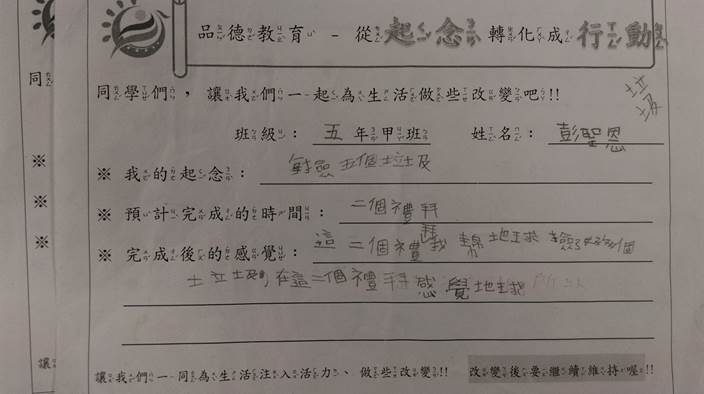 品德教育 - 從起念轉化成行動
同
同學們，讓我們一起為生活做些改變吧!!
垃圾
班級： 五年甲班 姓名： 彭聖恩
※
※ 我的起念： 每天撿五個垃圾
※
※ 預計完成的時間： 二個禮拜
※
※ 完成後的感覺： 這二個禮拜我幫地球撿了好多個
土垃圾,在這二個禮拜感覺地球
讓
讓我們一同為生活注入活力、做些改變!! 改變後要繼續維持喔!!